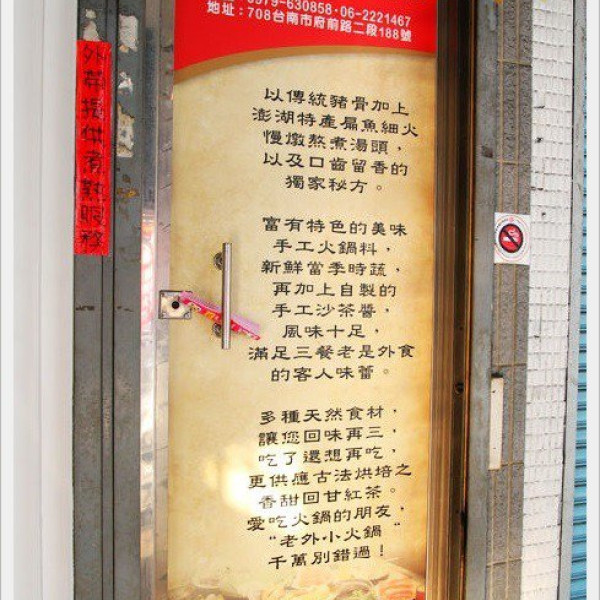 0979-630858·06-2221467
地址：708台南市府前路二段188號
外帶提供煮熟服務
以傳統豬骨加上
澎湖特產扁魚細火
慢燉熬煮湯頭，
以及口齒留香的
獨家秘方。
富有特色的美味
手工火鍋料，
新鮮當季時蔬，
再加上自製的
手工沙茶醬，
風味十足，
滿足三餐老是外食
的客人味蕾。
多種天然食材，
讓您回味再三，
吃了還想再吃，
更供應古法烘培之
香甜回甘紅茶。
愛吃火鍋的朋友，
“老外小火鍋＂
千萬別錯過！